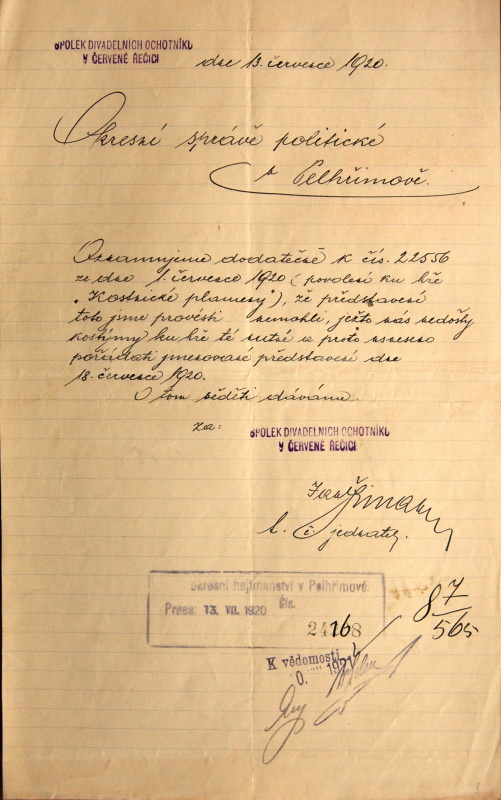 SPOLEK DIVADELNÍCH OCHOTNÍKŮ
V ČERVENÉ ŘEČICI
dne 13. července 1920.
Okresní správě politické
v Pelhřimově.
Oznamujeme dodatečně k čís. 22556
ze dne 1. července 1920 (povolení ku hře
„Kostnické plameny"), že představení
toto jsme provésti nemohli, ježto nás nedošly
kostýmy ku hře té nutné a proto
pořádati jmenované představení dne
18. července 1920.
O tom věděti dáváme.
za:
SPOLEK DIVADELNÍCH OCHOTNÍKŮ
V ČERVENÉ ŘEČICI
Jan
t. č. jednatel.
okresní hejtmanství v Pelhřimově.
Praes: 13. VII. 1920 Čís.
24168
87
565
K vědomosti